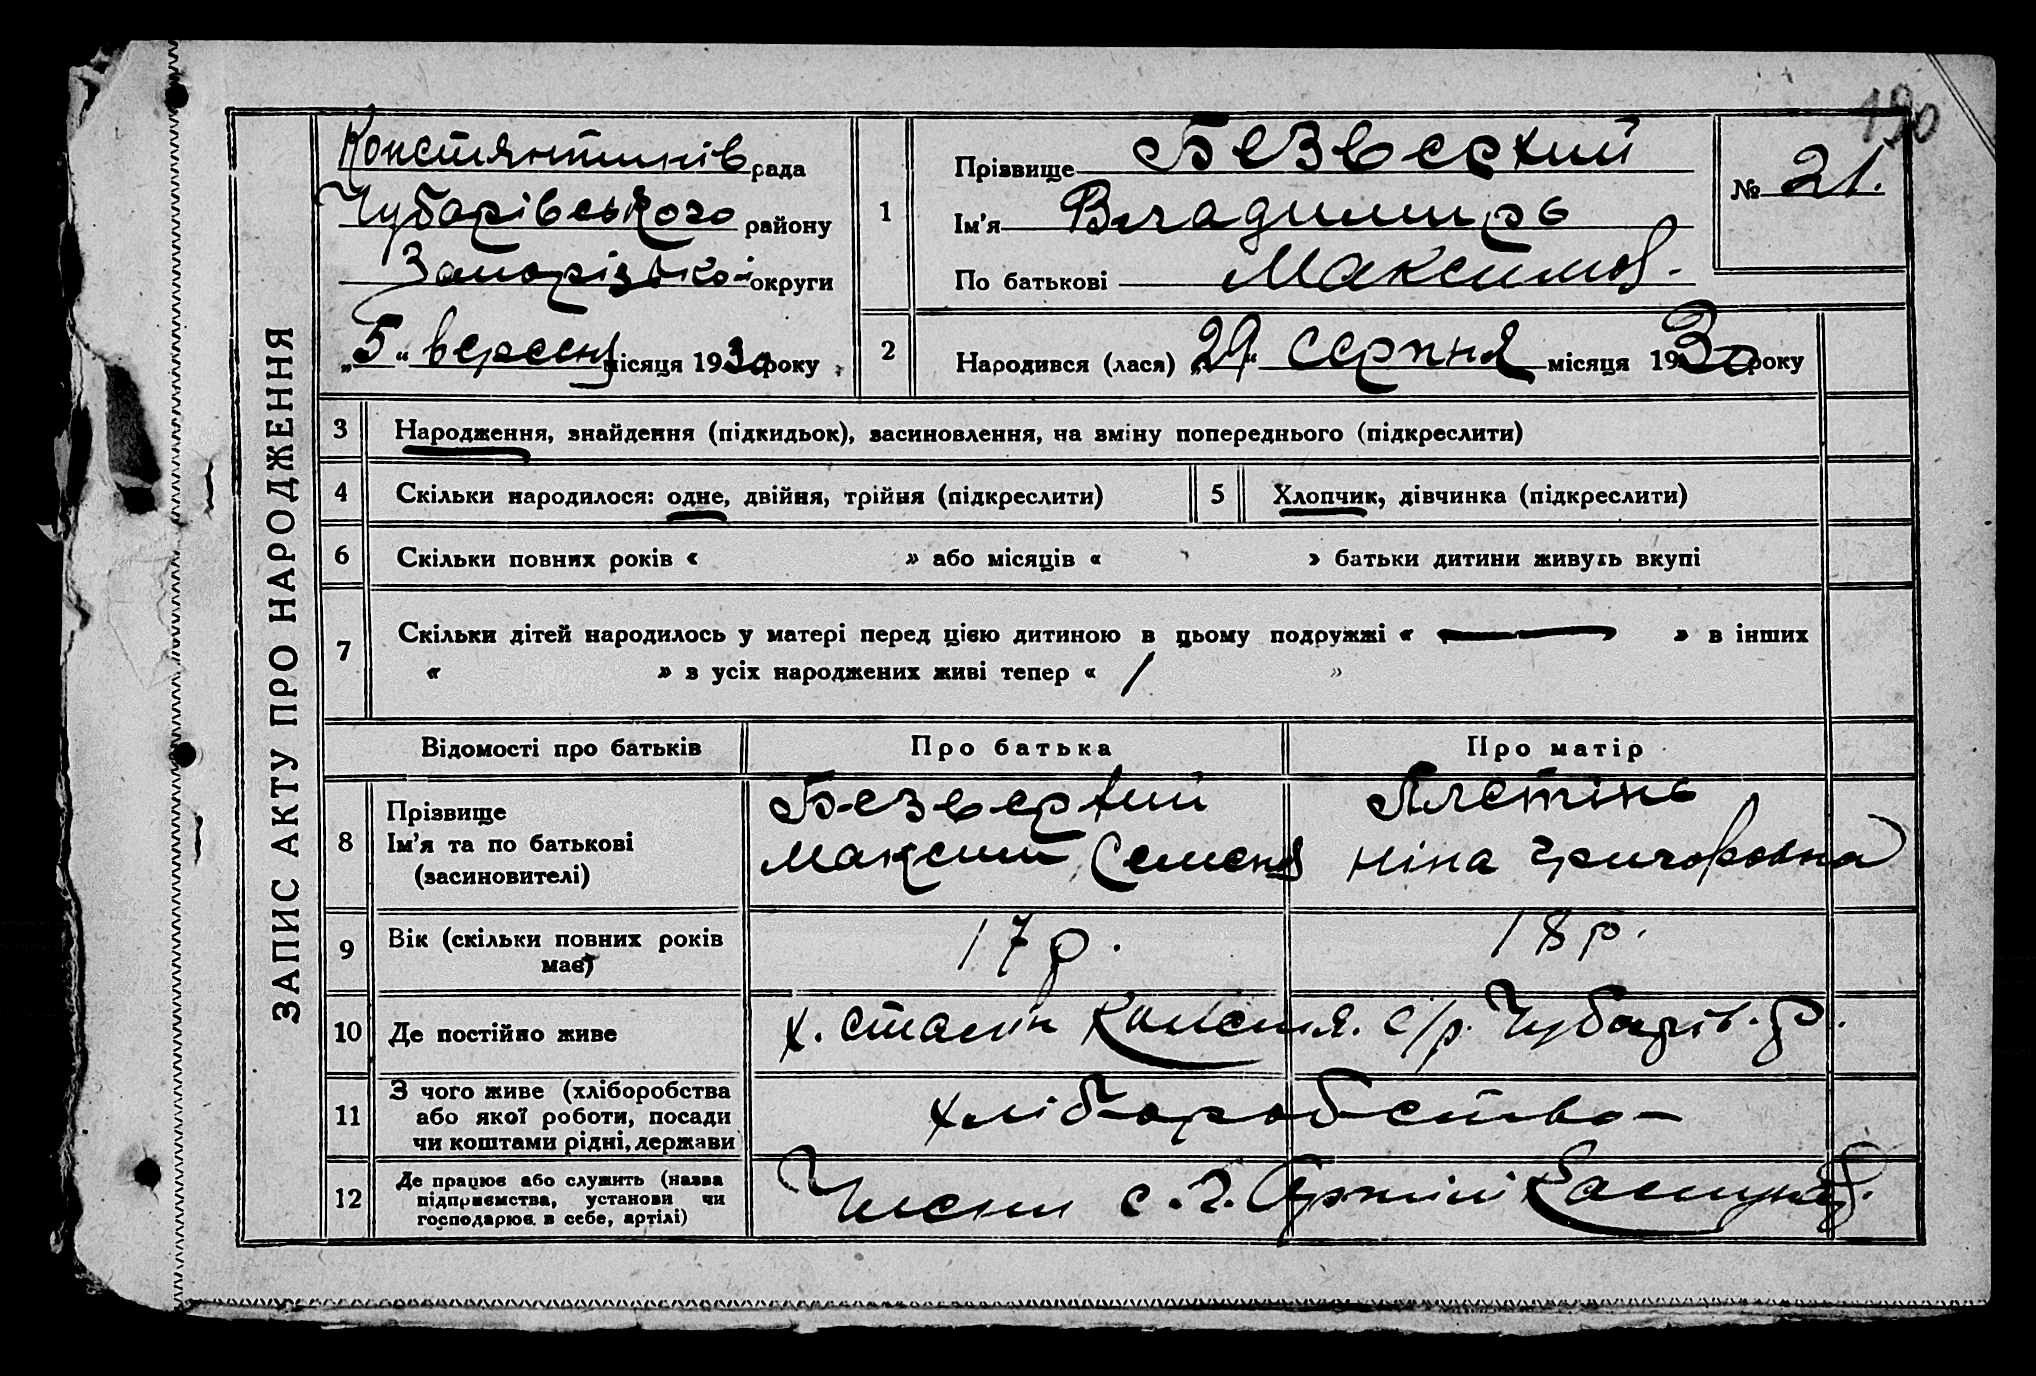 190
ЗАПИС АКТУ ПРО НАРОДЖЕННЯ
Констянтинів рада
Чубарівського району
Запорізької округи
„5“ вересня місяця 1930 року
1
Прізвище Безверхий
Ім'я Владимиръ
По батькові Максимов.
№ 21.
2
Народився (лася) „29“ серпня місяця 1930 року
3 Народження, знайдення (підкидьок), засиновлення, на зміну попереднього (підкреслити)
4 Скільки народилося: одне, двійня, трійня (підкреслити)
5 Хлопчик, дівчинка (підкреслити)
6 Скільки повних років « » або місяців « » батьки дитини живуть вкупі
7 Скільки дітей народилось у матері перед цією дитиною в цьому подружжі « — » в інших
« » в усіх народжених живі тепер « 1 »
Відомості про батьків Про батька Про матір
8 Прізвище
Ім'я та по батькові
(засиновителі)
Безверхий
Максим Семенов
Плетінь
Ніна Григоровна
9 Вік (скільки повних років
має)
17 р.
18 р.
10 Де постійно живе
х. Сталін Констя. с/р. Чубарів. р.
11 З чого живе (хліборобства
або якої роботи, посади
чи коштами рідні, держави
хліборобство
12 Де працює або служить (назва
підприємства, установи чи
господарює в себе, артілі)
Члени с. г. Артілі